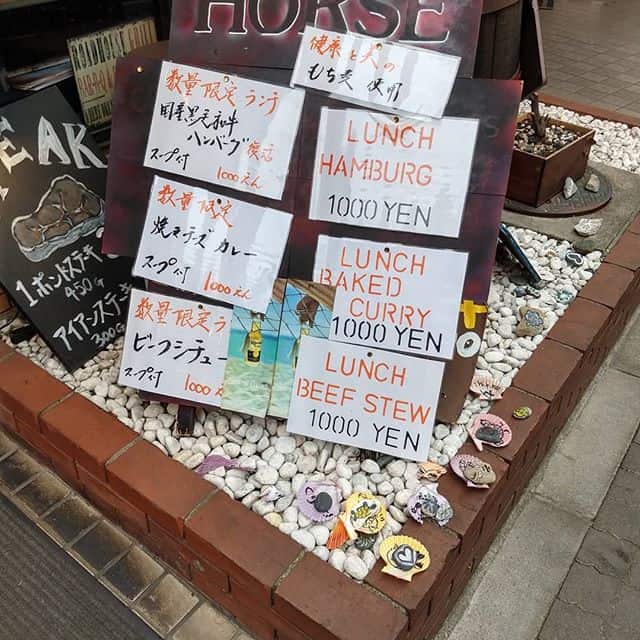 HORSE
健康と美の
もち麦 使用
数量限定ランチ
国産黒毛和牛
ハンバーグ
スープ付 1000えん
LUNCH
HAMBURG
1000 YEN
数量限定
焼きチーズカレー
スープ付 1000えん
LUNCH
BAKED
CURRY
1000 YEN
数量限定ラ
ビーフシチュー
スープ付 1000え
LUNCH
BEEF STEW
1000 YEN
EAK
1ポンドステキ
450G
アイアンステキ
300G